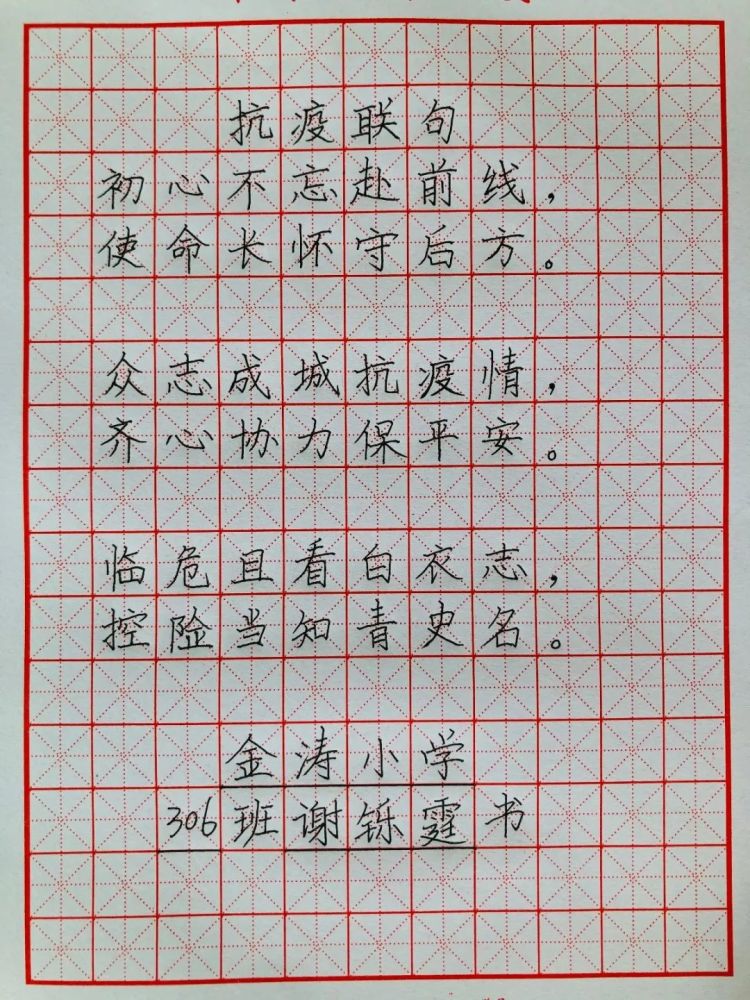 抗疫联句
初心不忘赴前线，
使命长怀守后方。
众志成城抗疫情，
齐心协力保平安。
临危且看白衣志，
控险当知青史名。
金涛小学
306班谢铄霆书